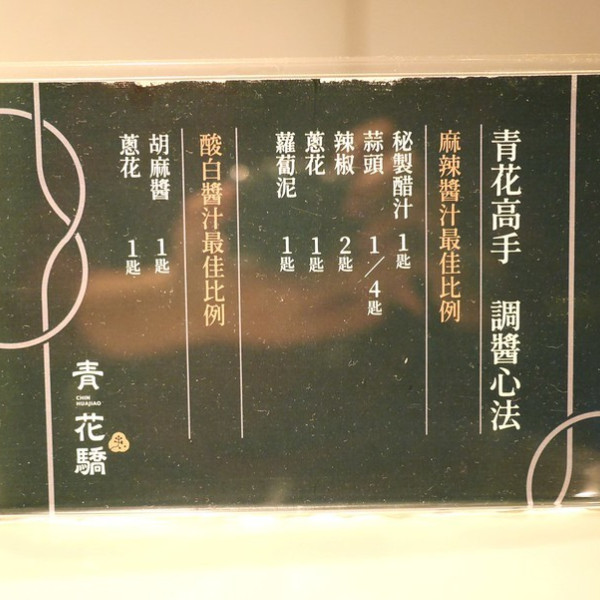 青花高手 調醬心法
麻辣醬汁最佳比例
秘製醋汁 1匙
蒜頭 1/4匙
辣椒 2匙
蔥花 1匙
蘿蔔泥 1匙
酸白醬汁最佳比例
胡麻醬 1匙
蔥花 1匙
青花驕
CHIN
HUAJIAO